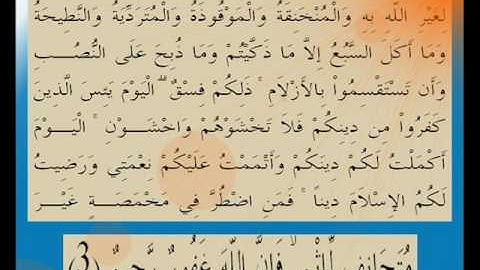 لِغَيْرِ اللَّهِ بِهِ وَالْمُنْخَنِقَةُ وَالْمَوْقُوذَةُ وَالْمُتَرَدِّيَةُ وَالنَّطِيحَةُ
وَمَا أَكَلَ السَّبُعُ إِلاَّ مَا ذَكَّيْتُمْ وَمَا ذُبِحَ عَلَى النُّصُبِ
وَأَن تَسْتَقْسِمُواْ بِالأَزْلاَمِ ۚ ذَلِكُمْ فِسْقٌ ۗ الْيَوْمَ يَئِسَ الَّذِينَ
كَفَرُواْ مِن دِينِكُمْ فَلاَ تَخْشَوْهُمْ وَاخْشَوْنِ ۚ الْيَوْمَ
أَكْمَلْتُ لَكُمْ دِينَكُمْ وَأَتْمَمْتُ عَلَيْكُمْ نِعْمَتِي وَرَضِيتُ
لَكُمُ الإِسْلاَمَ دِيناً ۚ فَمَنِ اضْطُرَّ فِي مَخْمَصَةٍ غَيْرَ
مُتَجَانِفٍ لِّإِثْمٍ ۙ فَإِنَّ اللَّهَ غَفُورٌ رَّحِيمٌ (3)